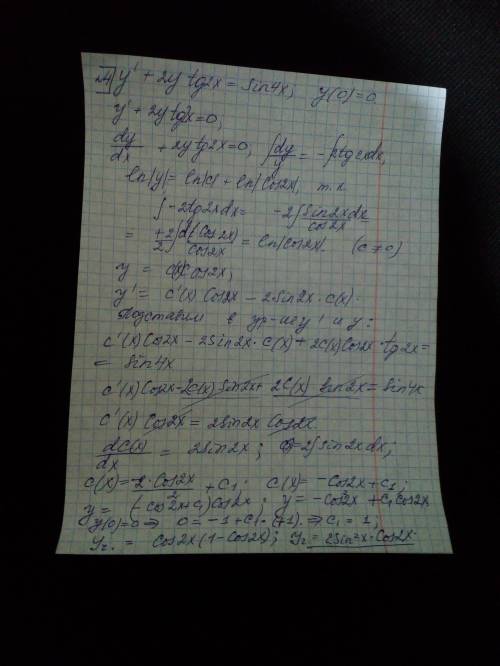 №4 y' + 2y tg2x = sin4x; y(0)=0
y' + 2y tg2x = 0;
dy/dx + 2y tg2x = 0, ∫dy/y = -∫2tg2xdx,
ln|y| = ln|c| + ln|cos2x|, т.к.
∫-2tg2xdx = -2∫sin2xdx/cos2x
= +2/2∫d(cos2x)/cos2x = ln|cos2x|. (c≠0)
y = c(x)cos2x,
y' = c'(x)cos2x - 2sin2x·c(x).
Подставим в ур-ие y' и y:
c'(x)cos2x - 2sin2x·c(x) + 2c(x)cos2x·tg2x =
= sin4x
c'(x)cos2x - 2c(x)sin2x + 2c(x)sin2x = sin4x
c'(x)cos2x = 2sin2x cos2x
dc(x)/dx = 2sin2x; = 2∫sin2xdx;
c(x) = -2·cos2x/2 + c₁; c(x) = -cos2x + c₁;
y = (-cos2x + c₁)cos2x; y = -cos²2x + c₁cos2x,
y(0)=0 ⇒ 0 = -1 + c₁·(+1). ⇒ c₁ = 1;
yч. = cos2x(1-cos2x); yч = 2sin²x·cos2x.